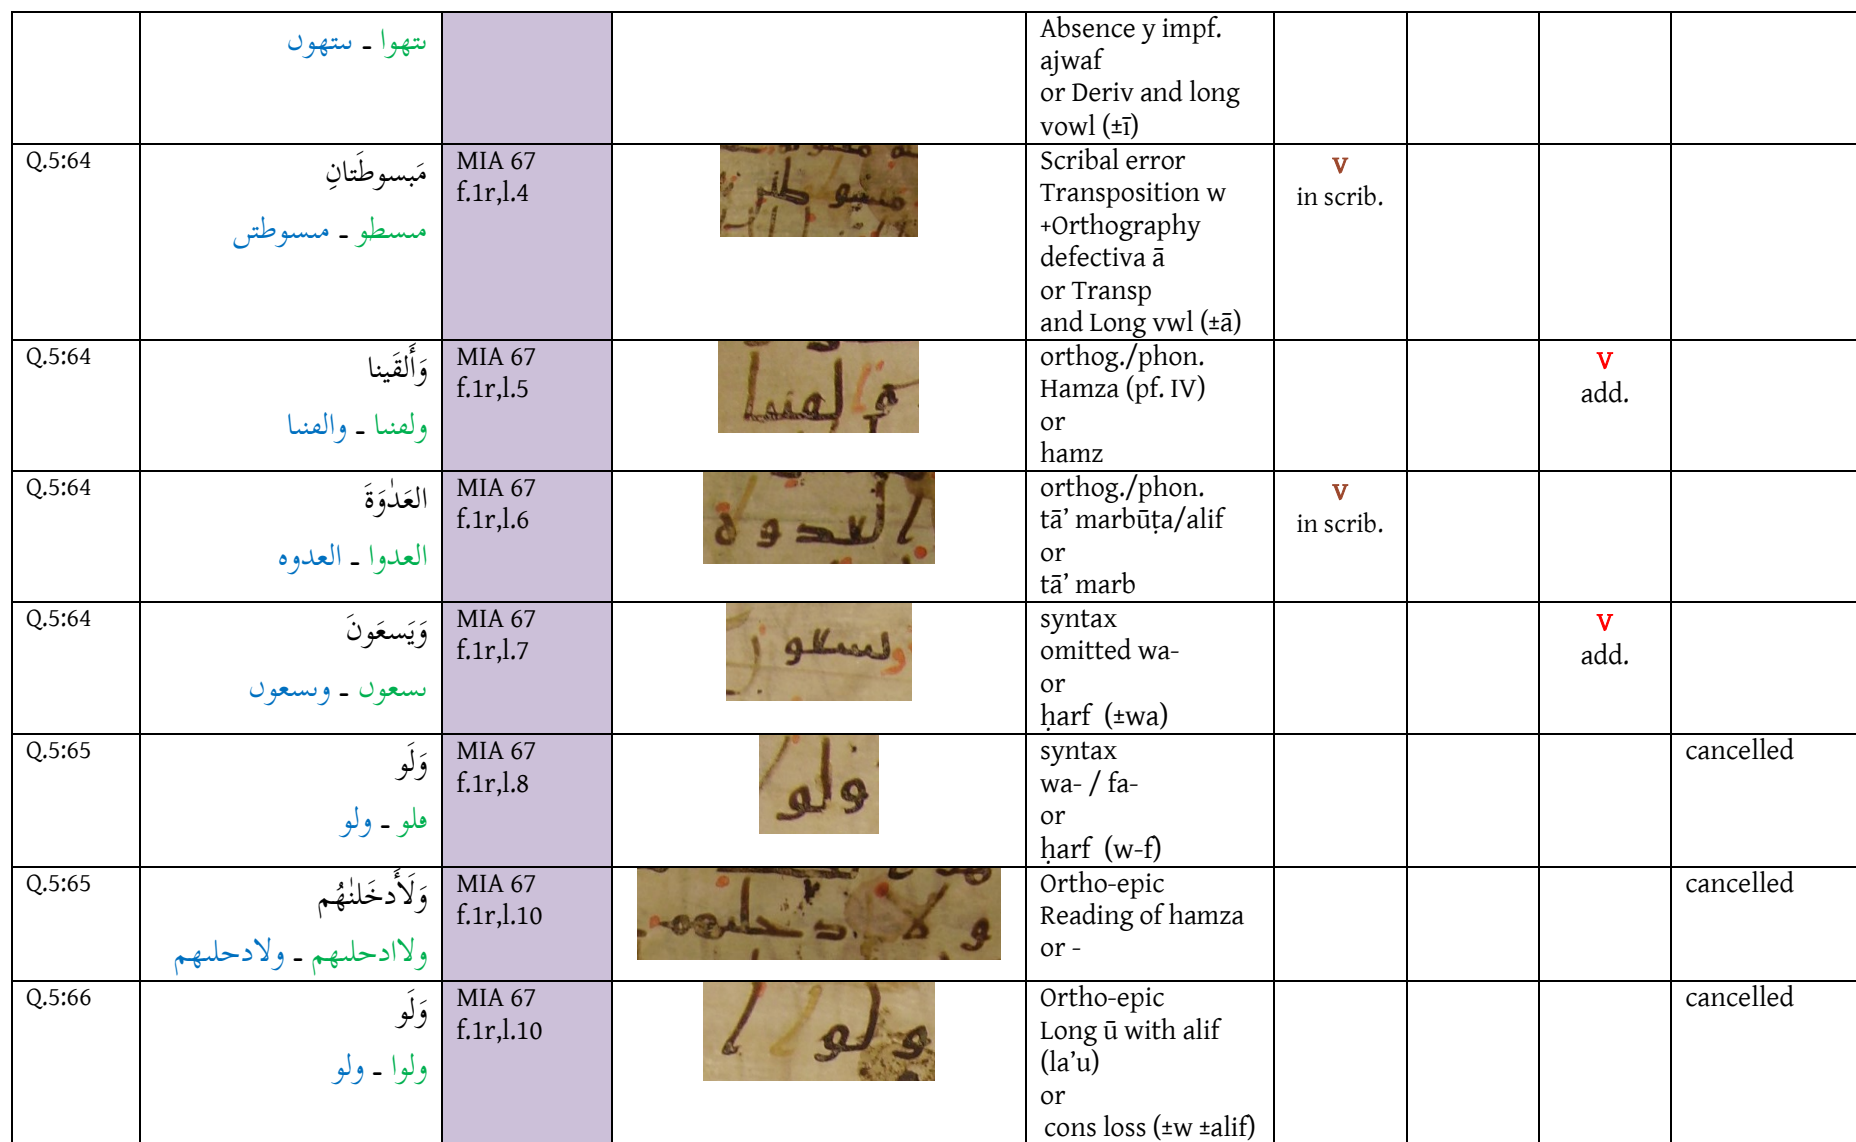 ىتهوا ـ ىىتهوں
Absence y impf.
ajwaf
or Deriv and long
vowl (±ī)
Q.5:64
مَبسوطَتانِ
مىسطو ـ مىسوطتں
MIA 67
f.1r,l.4
Scribal error
Transposition w
+Orthography
defectiva ā
or Transp
and Long vwl (±ā)
v
in scrib.
Q.5:64
وَأَلقَينا
ولڡىىا ـ والڡىىا
MIA 67
f.1r,l.5
orthog./phon.
Hamza (pf. IV)
or
hamz
v
add.
Q.5:64
العَدٰوَةَ
العدوا ـ العدوه
MIA 67
f.1r,l.6
العدوه
orthog./phon.
tā’ marbūṭa/alif
or
tā’ marb
v
in scrib.
Q.5:64
وَيَسعَونَ
ىسعوں ـ وىسعوں
MIA 67
f.1r,l.7
وىسعوں
syntax
omitted wa-
or
ḥarf (±wa)
v
add.
Q.5:65
وَلَو
ڡلو ـ ولو
MIA 67
f.1r,l.8
ولو
syntax
wa- / fa-
or
ḥarf (w-f)
cancelled
Q.5:65
وَلَأَدخَلنٰهُم
ولاادحلىهم ـ ولادحلىهم
MIA 67
f.1r,l.10
ولا دحلىهم
Ortho-epic
Reading of hamza
or -
cancelled
Q.5:66
وَلَو
ولوا ـ ولو
MIA 67
f.1r,l.10
Ortho-epic
Long ū with alif
(la’u)
or
cons loss (±w ±alif)
cancelled